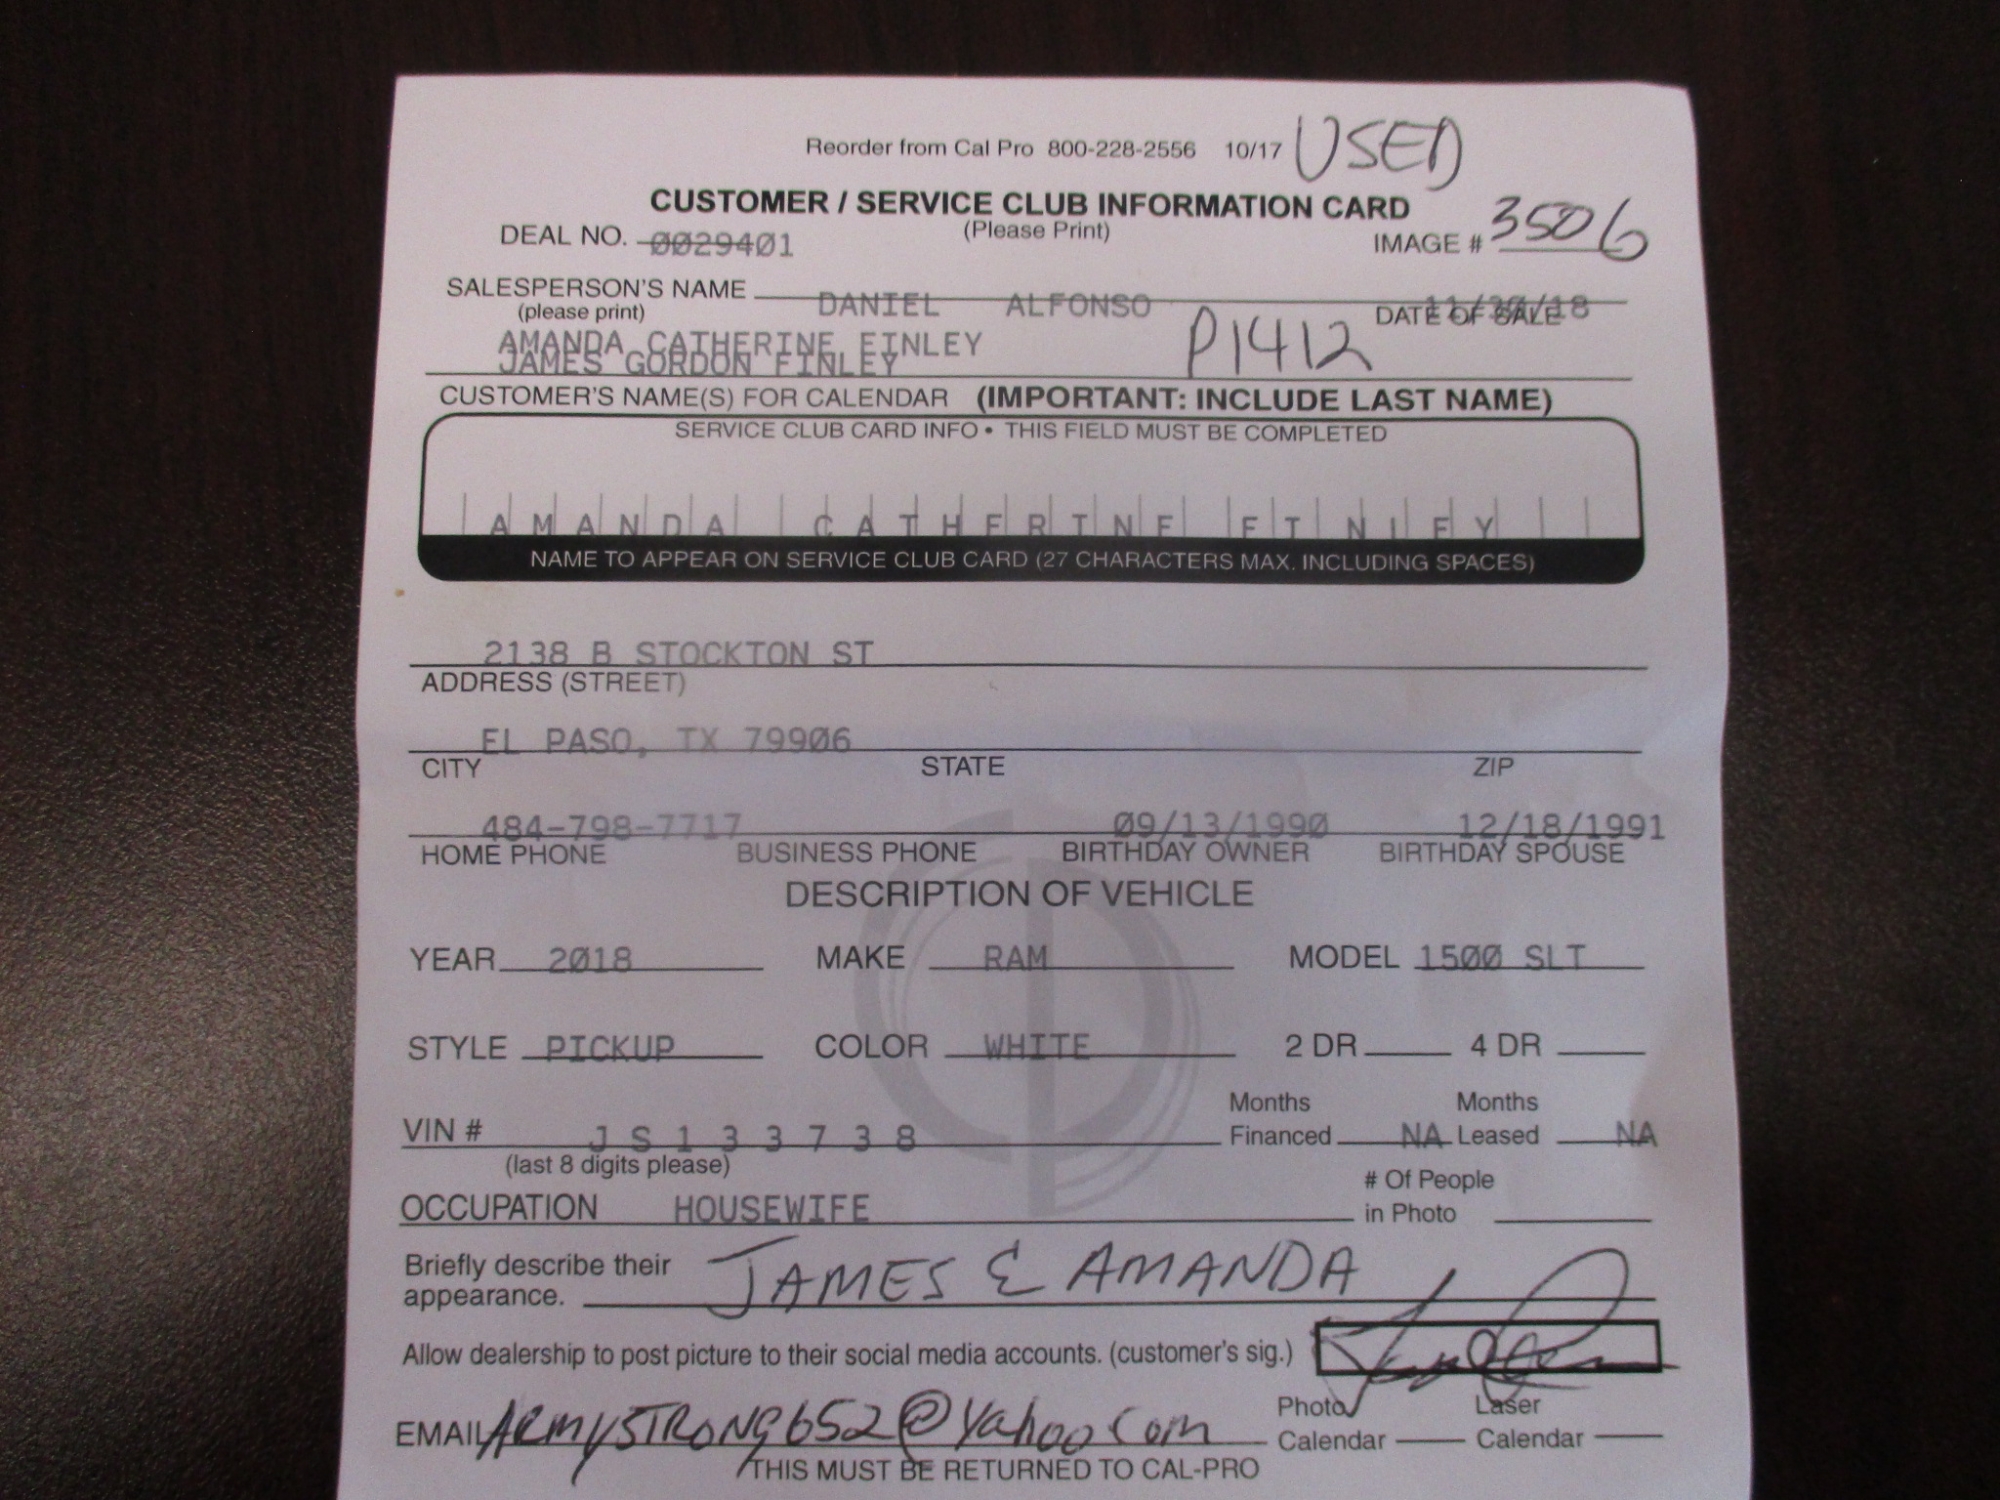 Reorder from Cal Pro 800-228-2556 10/17 USED
CUSTOMER / SERVICE CLUB INFORMATION CARD
(Please Print)
DEAL NO. 0029401 IMAGE # 3506
SALESPERSON'S NAME DANIEL ALFONSO
(please print) DATE OF SALE 11/30/18
AMANDA CATHERINE FINLEY P1412
JAMES GORDON FINLEY
CUSTOMER'S NAME(S) FOR CALENDAR (IMPORTANT: INCLUDE LAST NAME)
SERVICE CLUB CARD INFO • THIS FIELD MUST BE COMPLETED
AMANDA CATHERINE FINLEY
NAME TO APPEAR ON SERVICE CLUB CARD (27 CHARACTERS MAX. INCLUDING SPACES)
2138 B STOCKTON ST
ADDRESS (STREET)
EL PASO, TX 79906
CITY STATE ZIP
484-798-7717 09/13/1990 12/18/1991
HOME PHONE BUSINESS PHONE BIRTHDAY OWNER BIRTHDAY SPOUSE
DESCRIPTION OF VEHICLE
YEAR 2018 MAKE RAM MODEL 1500 SLT
STYLE PICKUP COLOR WHITE 2 DR 4 DR
Months Months
VIN # JS133738 Financed NA Leased NA
(last 8 digits please)
# Of People
OCCUPATION HOUSEWIFE in Photo
Briefly describe their
appearance. JAMES & AMANDA
Allow dealership to post picture to their social media accounts. (customer's sig.)
Photo Laser
EMAIL ARMYSTRONG652@Yahoo.com Calendar Calendar
THIS MUST BE RETURNED TO CAL-PRO